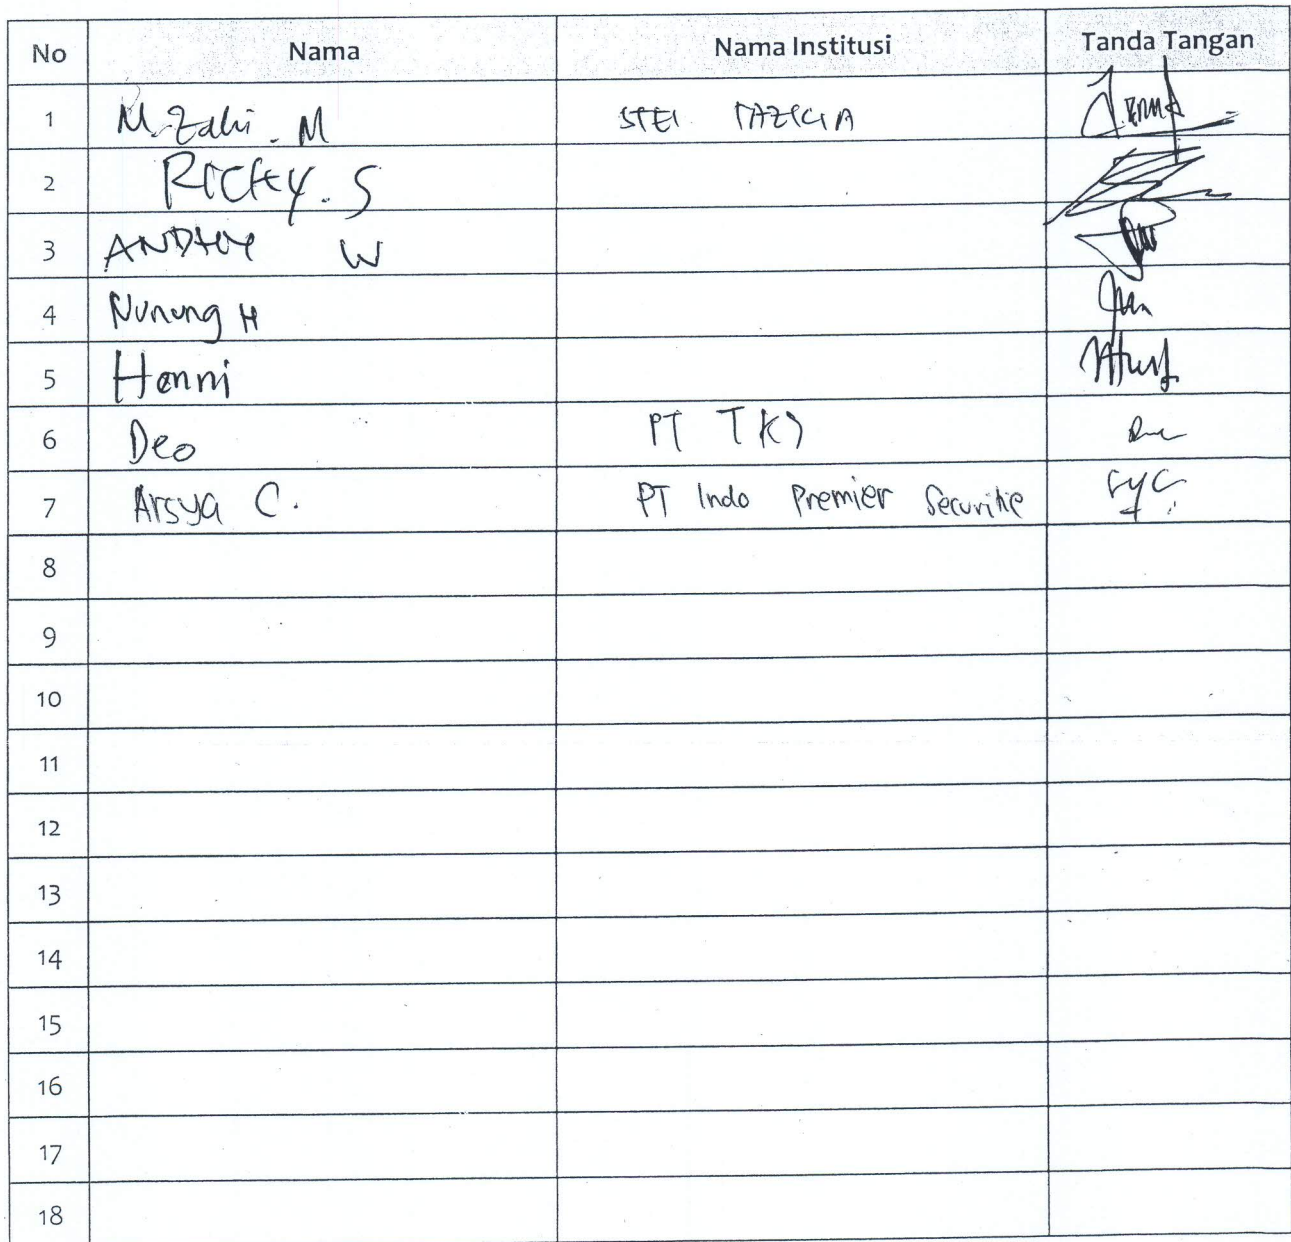 No Nama Nama Institusi Tanda Tangan
1 M. Zaki. M STEI TAZKIA
2 RICKY. S
3 W
4 Nunung H
5 Henni
6 Deo PT
7 Arsya C. PT Indo Premier Securitie
8
9
10
11
12
13
14
15
16
17
18